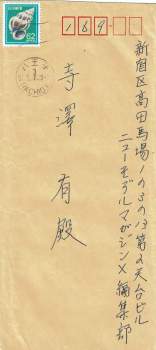 169-
新宿区高田馬場1の3の13第2天台ビル
ニューモデルマガジンX編集部
寺澤有殿
62
八王子
HACHIOJI